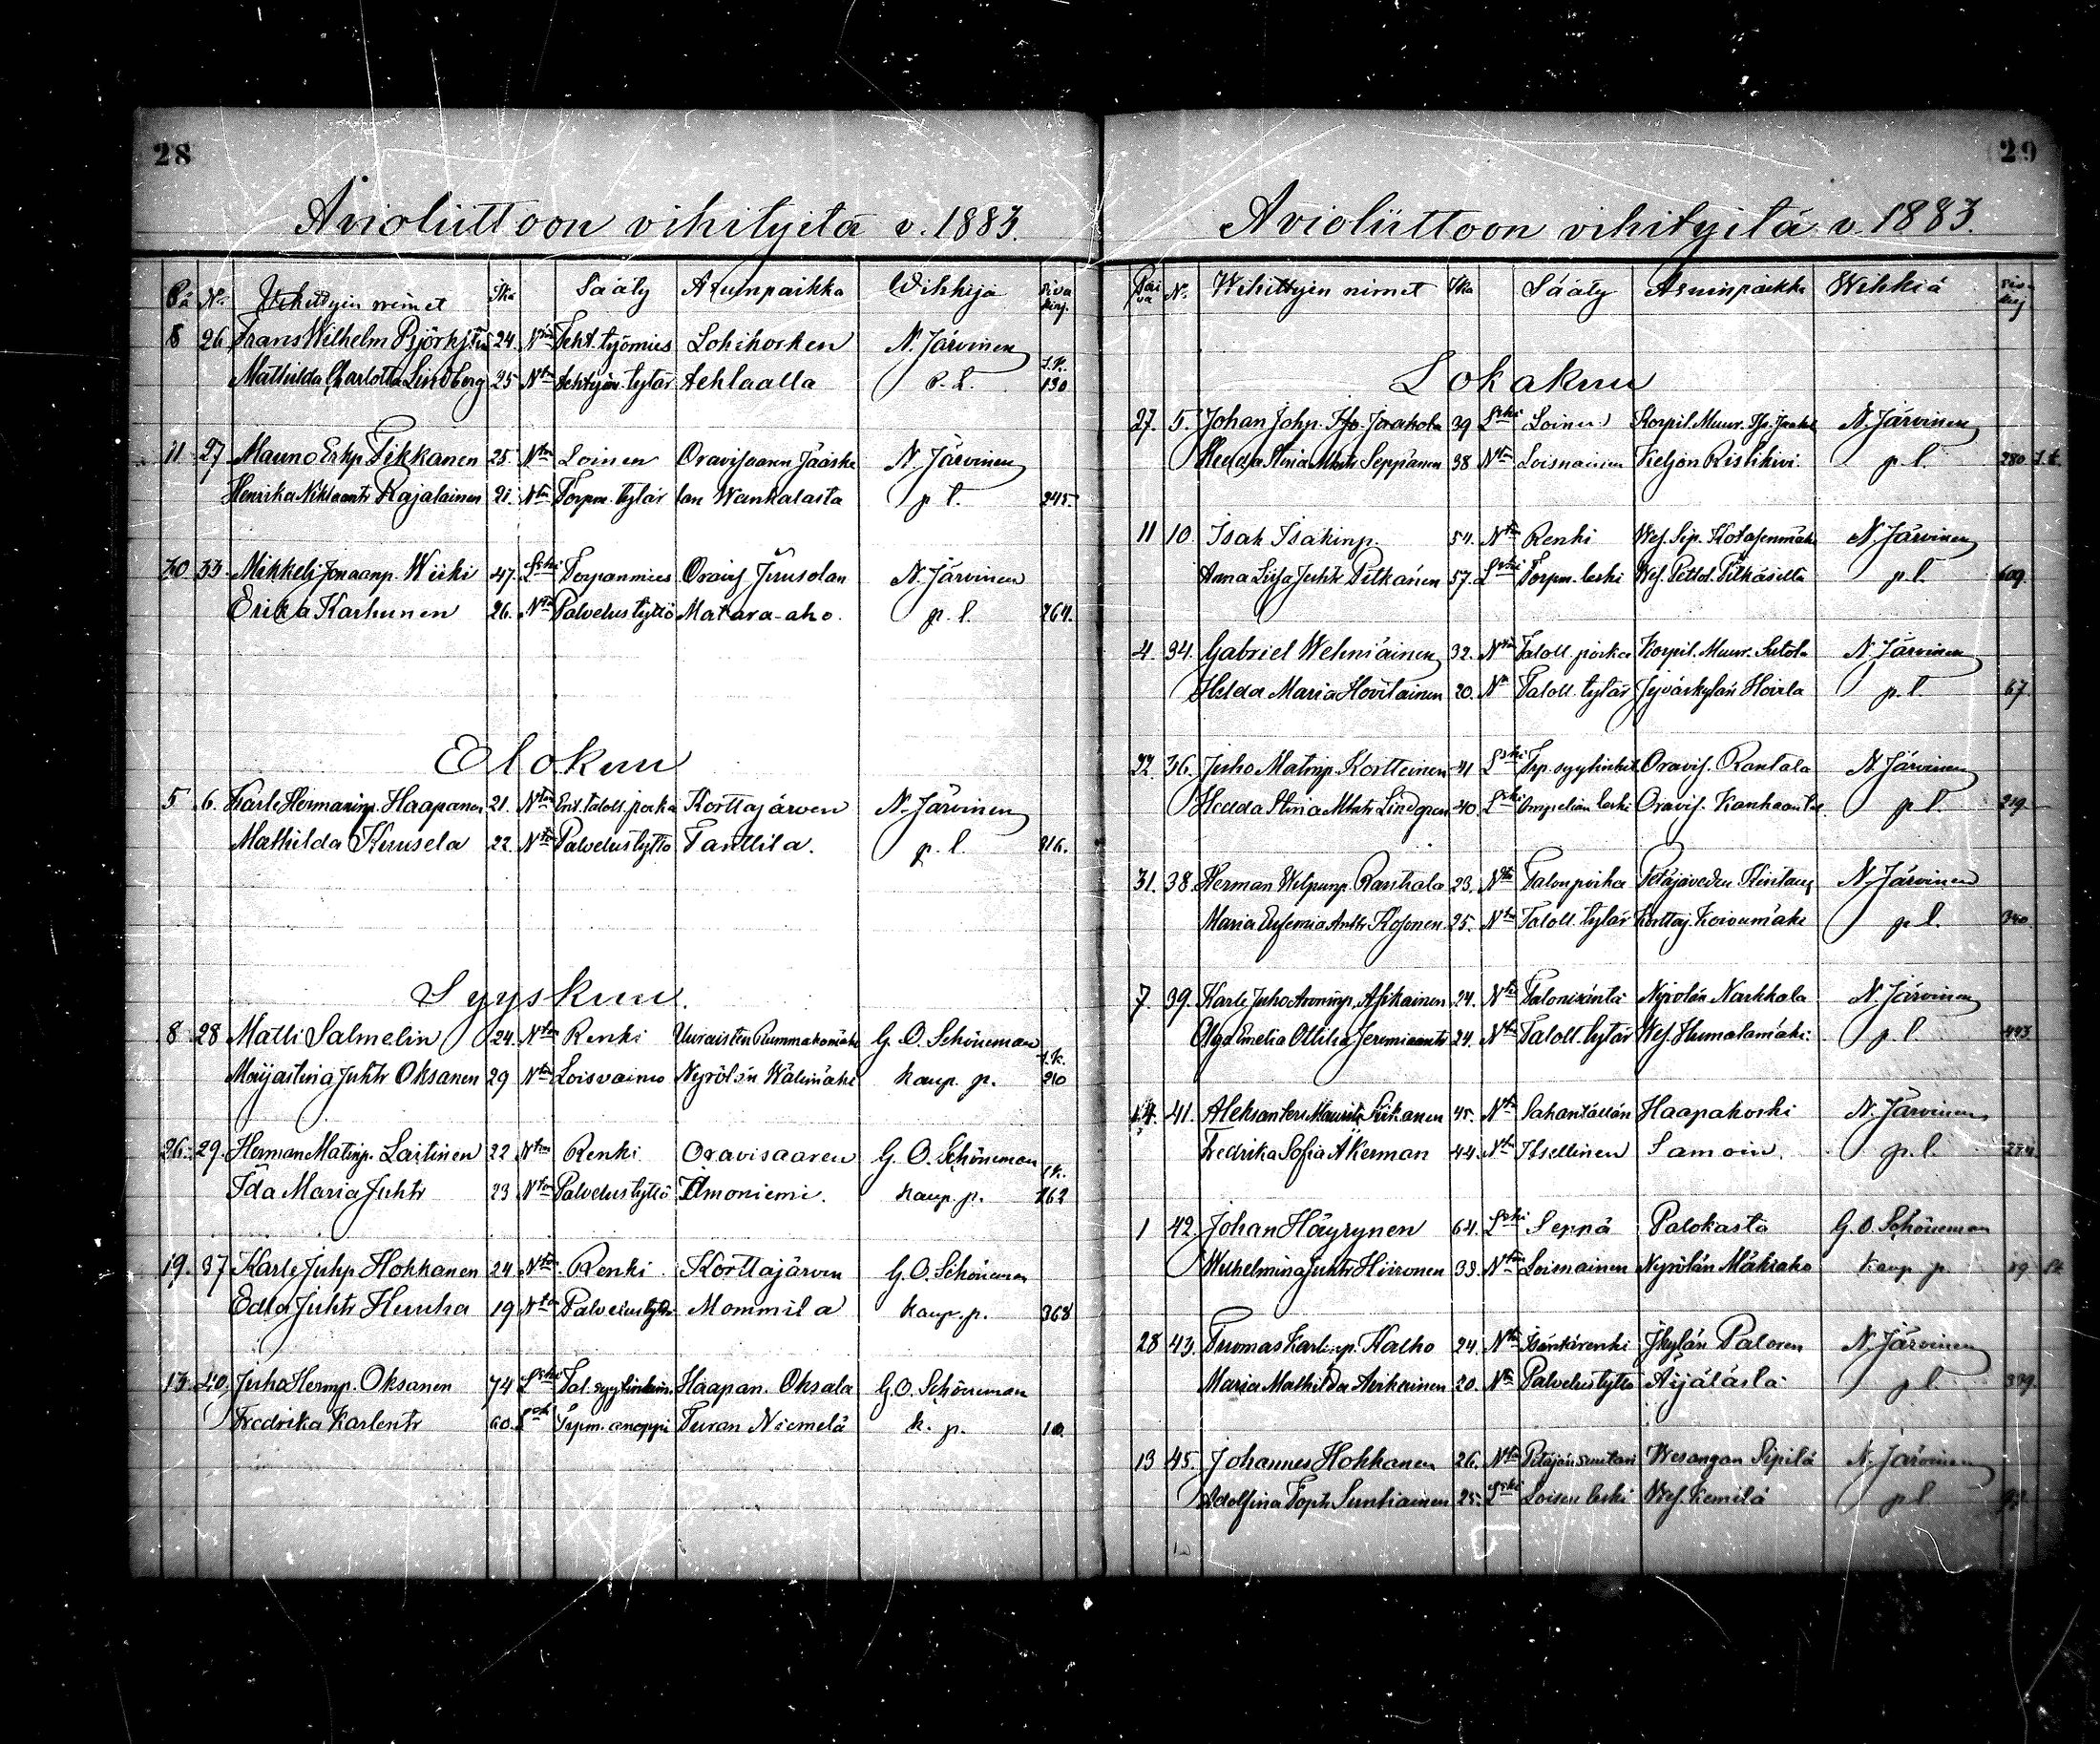 28
Avioliittoon vihityitä v. 1883.
Pä No. Vihittyin nimet Ikä Sääty Asuinpaikka Vihkijä siva kirj.
8 26 Frans Wilhelm 24. Ntön Teht. työmies Lohikosken N. Järvinen
Mathilda Charlotta Lindberg 25 Ntön tehtaalla p. l. 1.K. 130
11 27 Mauno Erkp. Tikkanen 25. Ntön Loinen Oravisaaren N. Järvinen
Henrika Rajalainen 21. Ntön Torpar. tytär lan Wankalasta p l. 245.
30 33. Mikkeli Joonaanp. Wiiki 47. Leski Torpanmies Oravis. Juusolan N. Järvinen
Erika Karhunen 26. Ntön Palvelustyttö Matara-aho. p. l. 264.
Elokuu
5 6. Karle Hermaninp. Haapanen 21. Ntön Ent. taloll. poika Korttajärven N. Järvinen
Mathilda Kuusela 22. Ntön Palvelustyttö Tanttila. p. l. 216.
Syyskuu.
8 28 Matti Salmelin 24. Ntön Renki Uuraisten G. O. Schöneman
Maijastina Juhtr Oksanen 29 Ntön Nyrölän Wälimäki kaup. p. 1.k. 210
26. 29. Herman Matinp. Laitinen 22 Ntön Renki Oravisaaren G. O. Schöneman
Ida Maria Juhtr 23 Ntön Palvelustyttö Ilmoniemi. kaup. p. 1k. 262
19. 37 Karle Juhp. Hokkanen 24. Ntön Renki Korttajärven G. O. Schöneman
Edla Juhtr Huuha 19 Ntön Palvelustyttö Mommila kaup. p. 368
13. 40. Juho Hermp. Oksanen 74 Leski Tal. Haapan. Oksala G. O. Schöneman
Fredrika Karlentr 60. Leski Torpm. anoppi Turan Niemelä k. p. 10.
29
Avioliittoon vihityitä v. 1883.
Päi vä No. Wihittyin nimet Ikä Sääty Asuinpaikka Wihkiä siv. kirj
Lokakuu
27. 5. Johan Johp. Jaakola 39 Leski Loinen Korpil. Muur. N. Järvinen
Hedda Stina Seppänen 38 Ntön Loisnainen Keljon Ristikivi. p. l. 280 1.k.
11 10. Isak Isakinp. 54. Ntön Renki Wes. Sip. N. Järvinen
Anna Liisa Juhtr Pitkänen 57. Leski Torpm. leski Wes. p. l. 609.
4. 34. Gabriel Wehniäinen 32. Ntön Taloll. poika Korpil. Muur. N. Järvinen
Helda Maria Hovilainen 20. Ntön Taloll. tytär Jyväskylän p. l. 67.
22. 36. Juho Matinp. Kortteinen 41 Leski Oravis. Rantala N. Järvinen
Hedda Stina Lindgren 40. Leski leski Oravis. p. l. 219.
31. 38. Herman 23. Ntön Talonpoika Petäjäveden N. Järvinen
Maria Eufemia Anttr Kosonen 25. Ntön Taloll. tytär Korttaj. Koivumäki p. l. 340
7. 39. Karle Juho 24. Ntön Talonisäntä Nyrölän Narkkola N. Järvinen
Olga Emelia Ottilia Jeremiaantr 24. Ntön Taloll. tytär Wes. Humalamäki. p. l. 443.
14. 41. Aleksanteri 45. Ntön Haapakoski N. Järvinen
Fredrika Sofia Åkerman 44. Ntön Itsellinen Samoin. p. l.
1 42. Johan Häyrynen 64. Leski Seppä Palokasta G. O. Schöneman
Wilhelmina Juhtr Hiironen 39. Ntön Loisnainen Nyrölän Mäkiaho kaup. p. 89
28 43. Tuomas Karlinp. Kalho 24. Ntön Isäntärenki Jkylän Paloren N. Järvinen
Maria Mathilda 20. Ntön Palvelustyttö Äijälästä p l
13 45. Johannes Hokkanen 26. Ntön Wesangan Sipilä N. Järvinen
Adolfina 25. Leski Loisen leski Wes. Kemilä p l